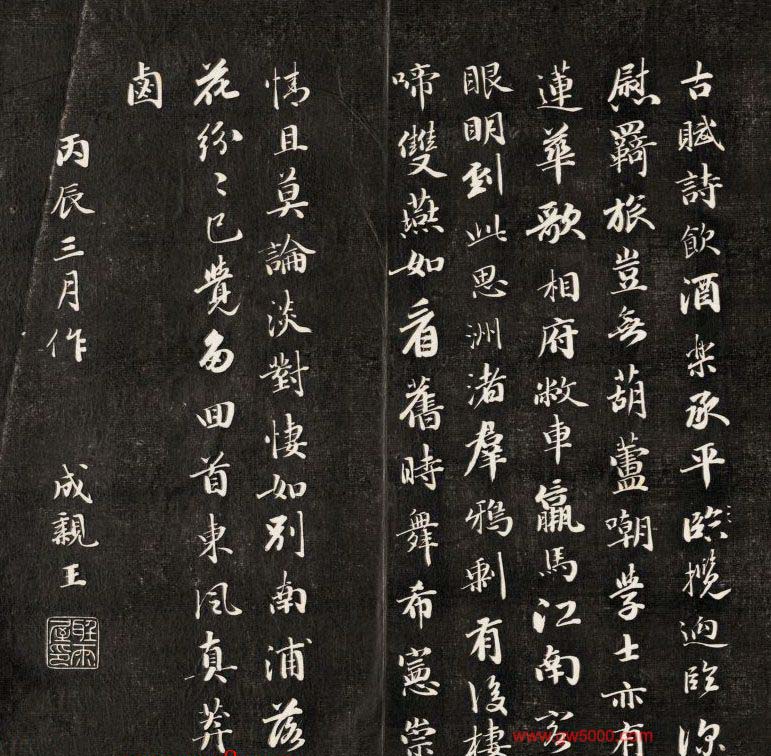 古賦詩飲酒樂承平臨攬迥臨深
慰羇旅豈無葫蘆嘲學士亦有
蓮華歌相府敝車羸馬江南客
眼明到此思洲渚羣鴉剩有後棲
啼雙燕如看舊時舞希憲崇
情且莫論淡對悽如別南浦落
花紛〻已覺多回首東風真莽
鹵
丙辰三月作 成親王
聽雨屋印